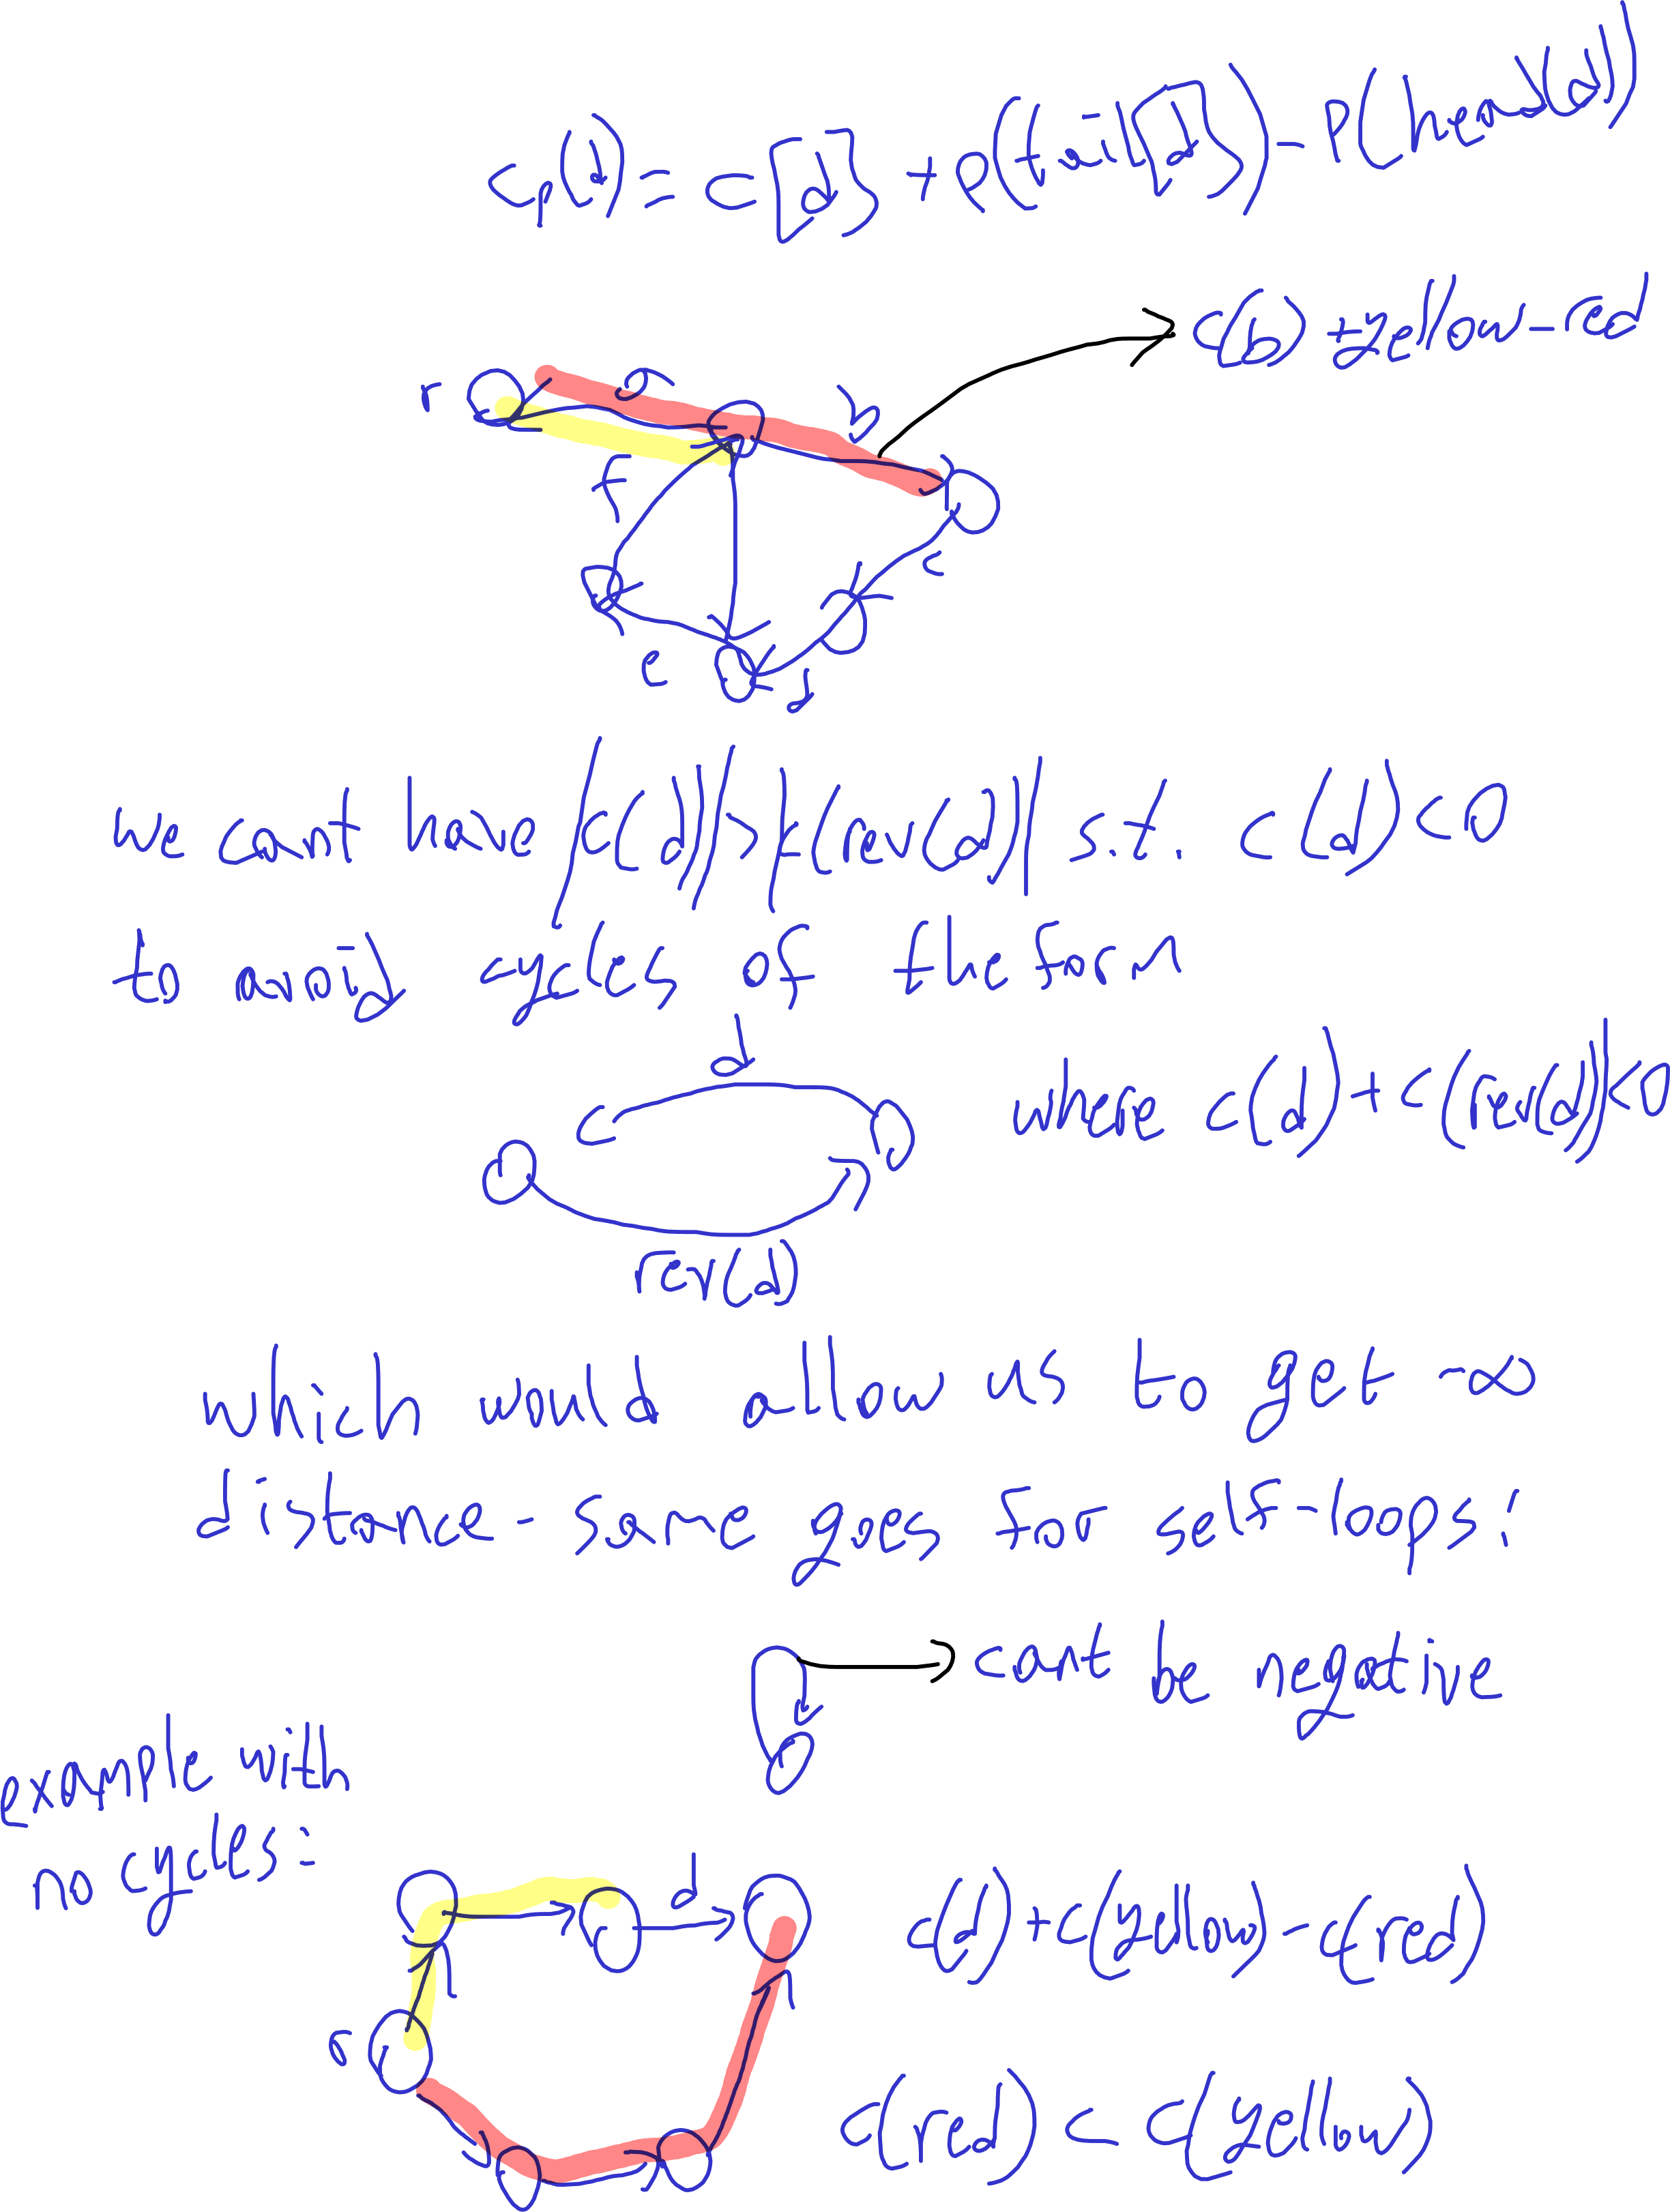 c_p(d) = c[d] + p(tail[d]) - p(head(d))
c(b) + yellow - red
r a b
f
c
e d
we cant have |c(d)| > |c(rev(d))| s.t. c(d) < 0
to avoid cycles of the form
d
where c(d) + c(rev(d)) < 0
rev(d)
which would allow us to get -∞
distance - same goes for self-loops:
cant be negative
example with
no cycles:
d
c(d) + c(yellow) - c(red)
r
c(red) < c(yellow)